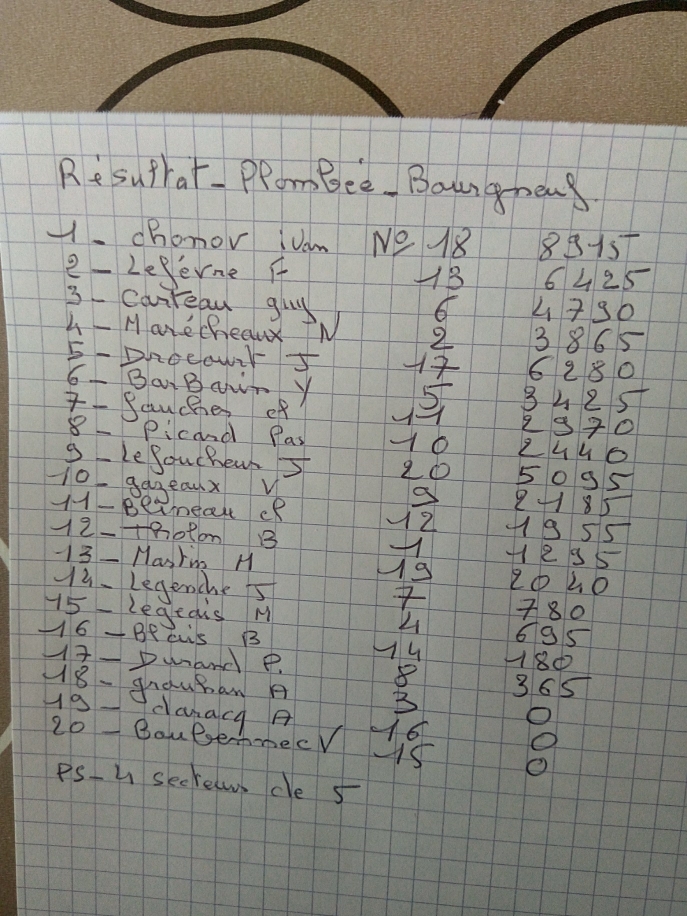 Résultat - Plombée - Bourgneuf.
1 - chonov ivan N° 18 8915
2 - Lefévre F 13 6425
3 - Carteau guy 6 4790
4 - Marécheaux N 2 3865
5 - Drocourt J 17 6280
6 - BarBarin Y 5 3425
7 - Saucher cl 11 2970
8 - Picard Pas 10 2440
9 - Lefoucheur J 20 5095
10 - gazeaux V 9 2185
11 - Blineau cl 12 1955
12 - Tholon B 1 1295
13 - Martin M 19 2040
14 - Legenche J 7 780
15 - Legeais M 4 695
16 - Blais B 14 180
17 - Durand P. 8 365
18 - A 3 0
19 - claracq A 16 0
20 - BoulBennec V 15 0
PS - 4 secteurs de 5